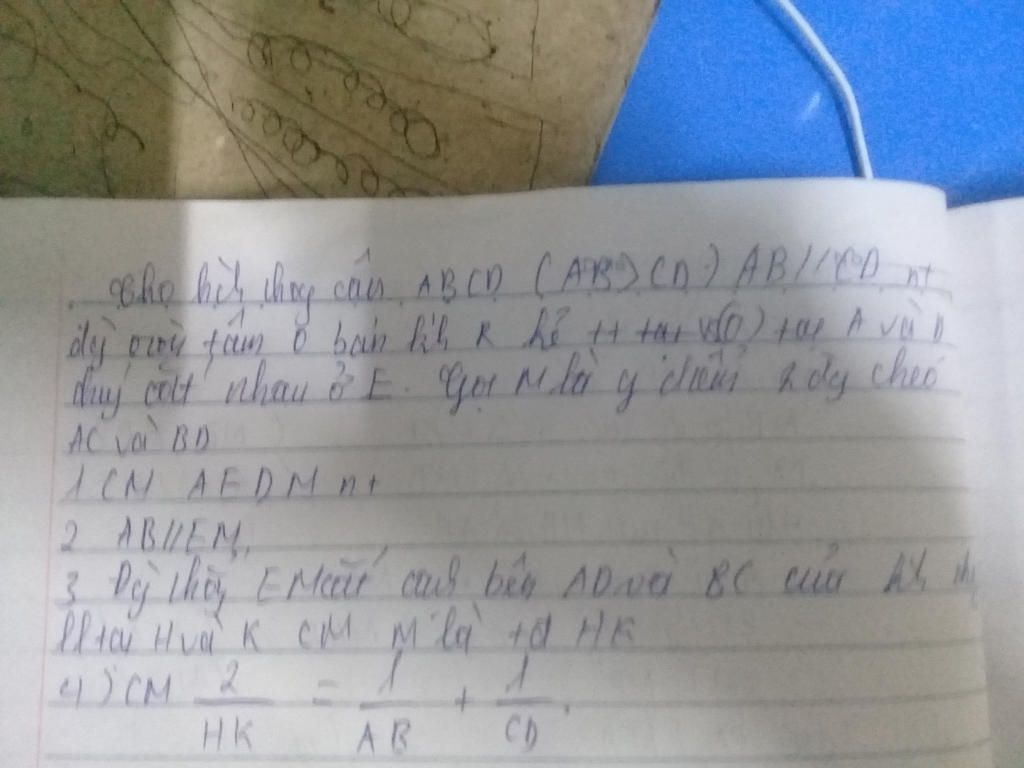 Cho hìh thag cân ABCD (AB > CD) AB // CD nt
đg tròn tâm O bán kíh R kẻ tt tại (O) tại A và D
chúg cắt nhau ở E. Gọi M là g điểm 2 đg chéo
AC và BD
1 CM AEDM nt
2 AB//EM.
3 Đg thẳg EM cắt cạh bên AD và BC của hìh thg
ll tại H và K CM M là tđ HK
4) CM 2/HK = 1/AB + 1/CD.